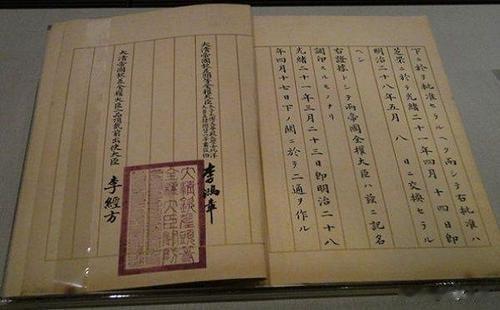 下ニ於テ批准セラルヘク而シテ右批准ハ
芝罘ニ於テ光緒二十一年四月十四日即
明治二十八年五月八日ニ交換セラル
ヘシ
右證據トシテ兩帝國全權大臣ハ茲ニ記名
調印スルモノナリ
光緒二十一年三月二十三日即明治二十八
年四月十七日下ノ關ニ於テ二通ヲ作ル
大清帝國欽差頭等全權大臣
李鴻章
大清帝國欽差全權大臣二品頂戴前出使大臣
李經方